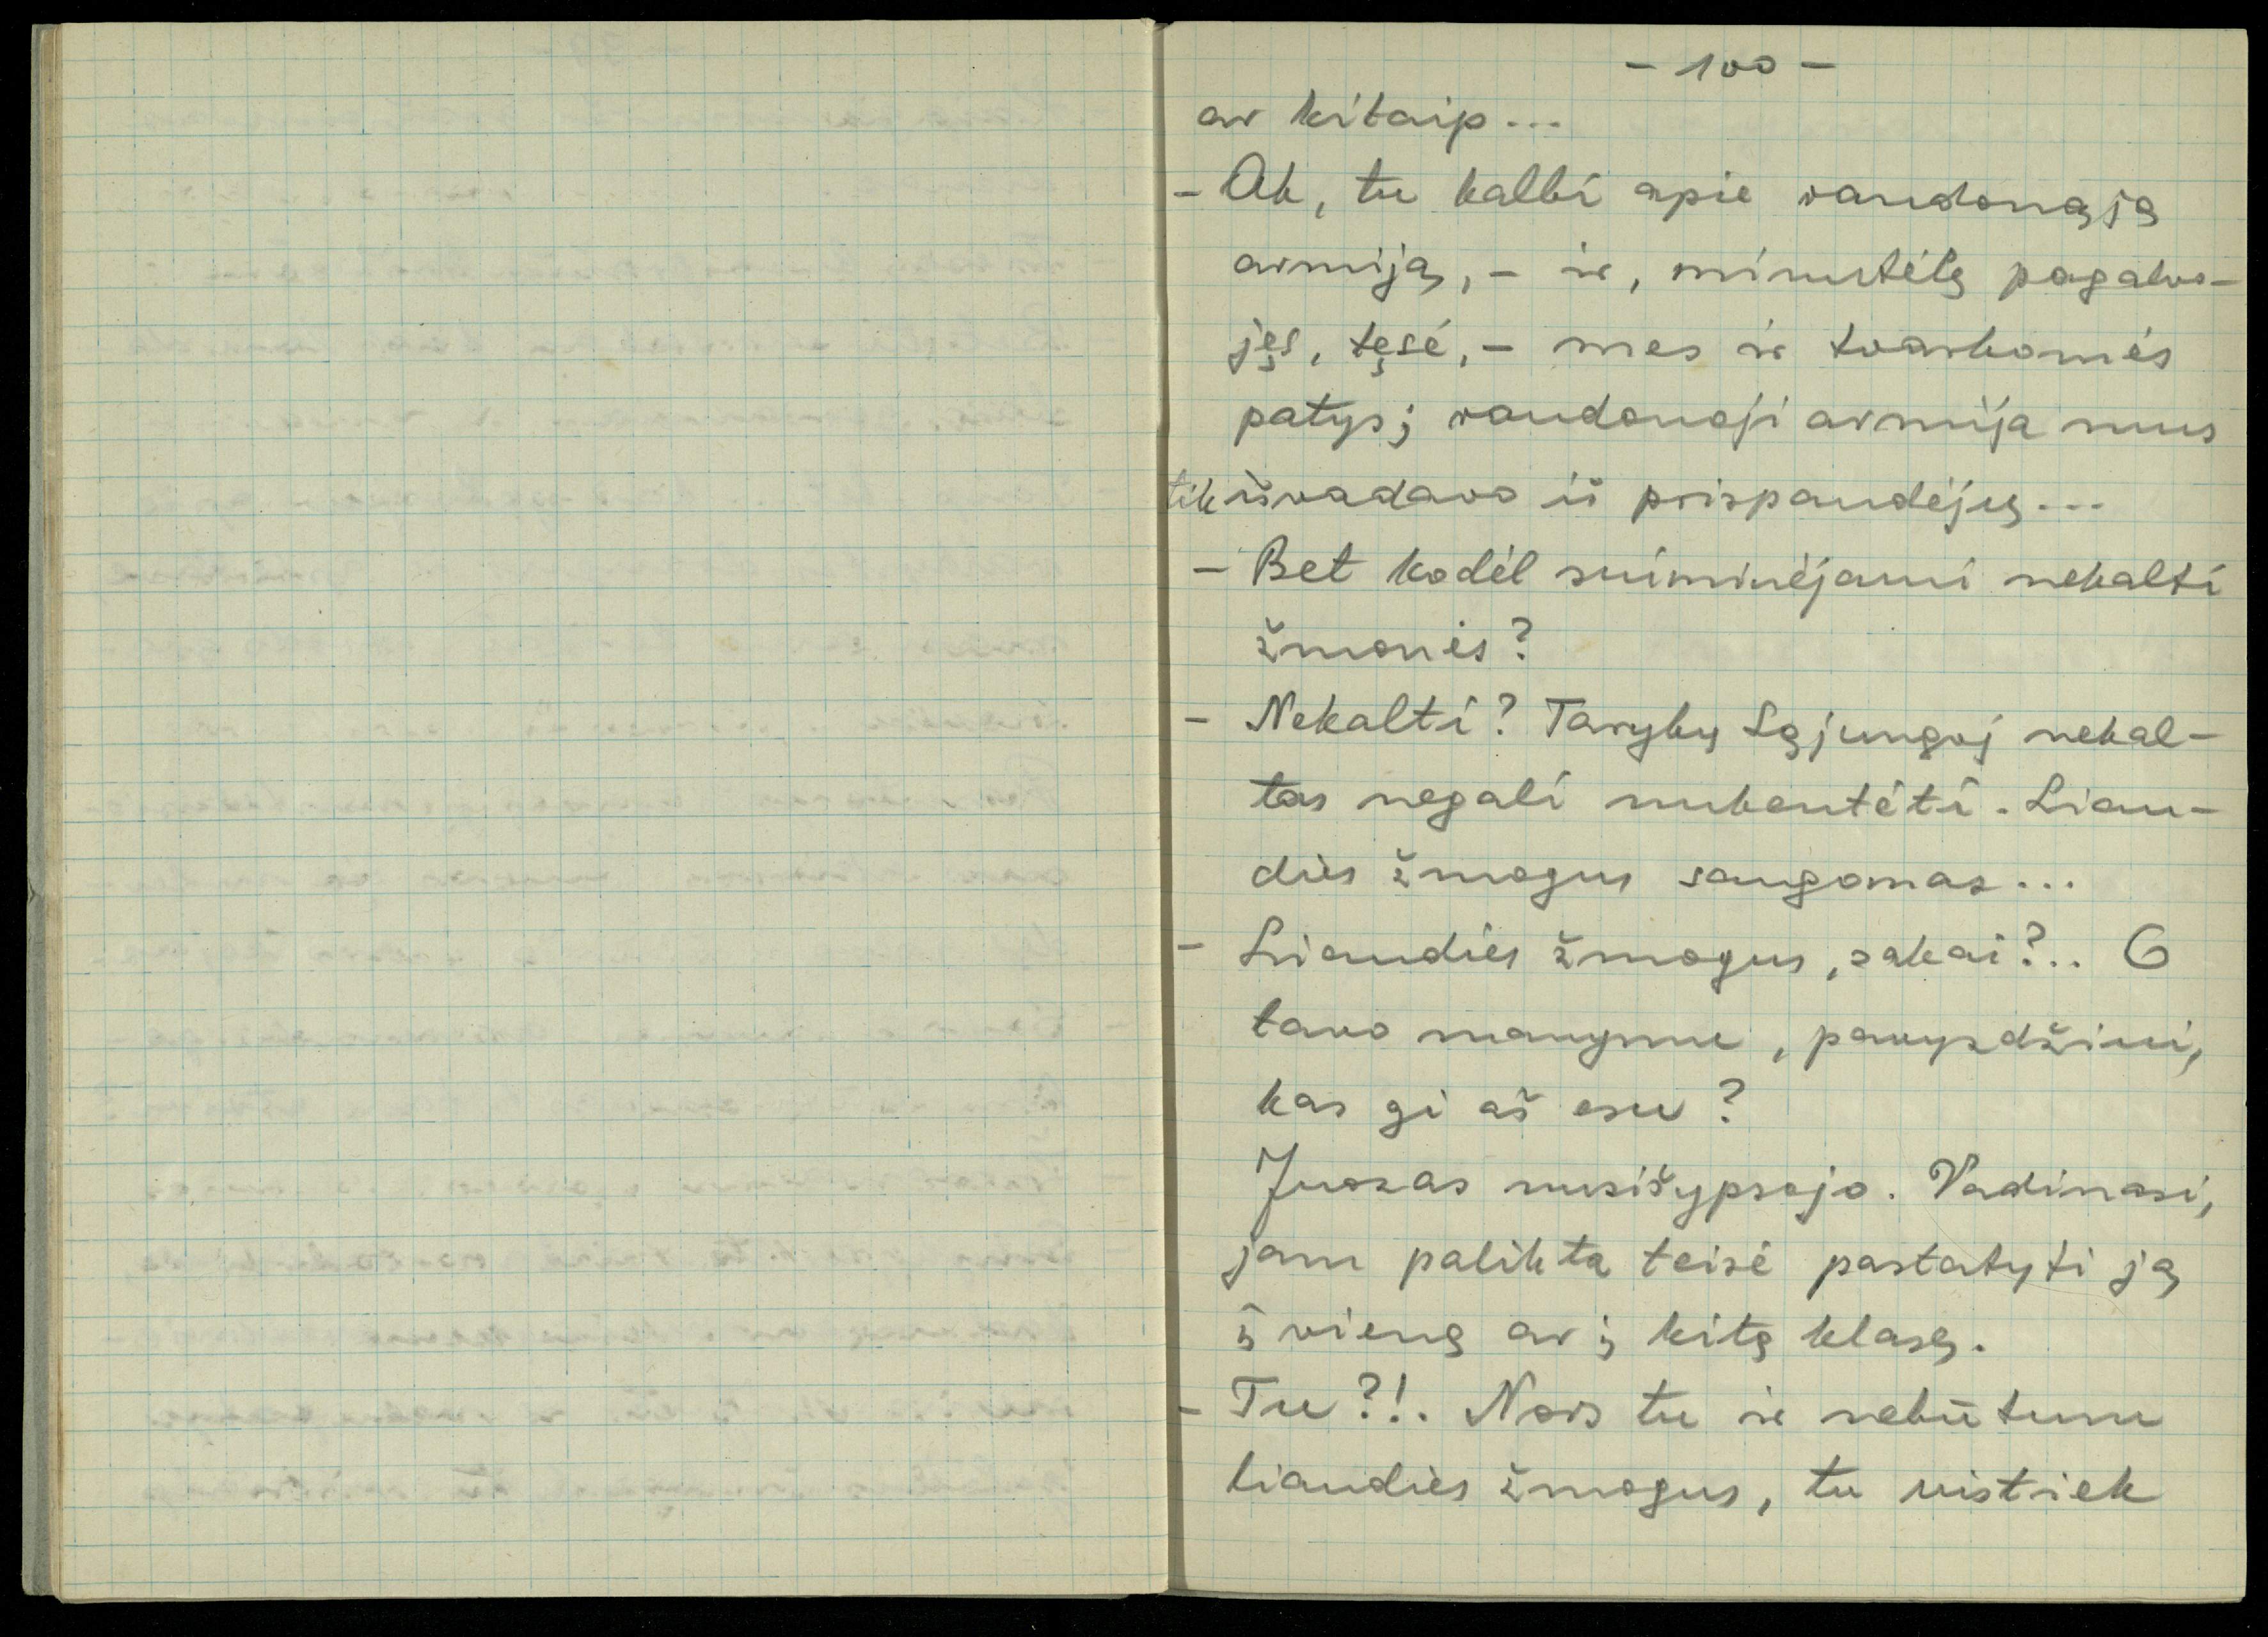 - 100 -
ar kitaip...
- Ak, tu kalbi apie raudonąją
armiją, - ir, minutėlę pagalvo-
jęs, tęsė, - mes ir tvarkomės
patys; raudonoji armija mus
tik išvadavo iš prispaudėjų...
- Bet kodėl suiminėjami nekalti
žmonės?
- Nekalti? Tarybų Sąjungoj nekal-
tas negali nukentėti. Liau-
dies žmogus saugomas...
- Liaudies žmogus, sakai?.. O
tavo manymu, pavyzdžiui,
kas gi aš esu?
Juozas nusišypsojo. Vadinasi,
jam palikta teisė pastatyti ją
į vieną ar į kitą klasę.
- Tu?!. Nors tu ir nebūtum
liaudies žmogus, tu vistiek